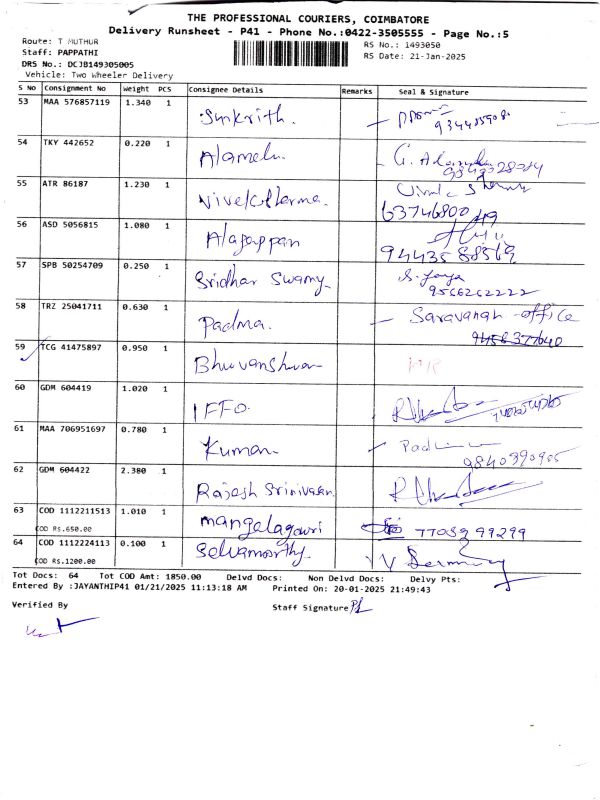 THE PROFESSIONAL COURIERS, COIMBATORE
Delivery Runsheet - P41 - Phone No.:0422-3505555 - Page No.:5
Route: T MUTHUR
RS No.: 1493050
Staff: PAPPATHI
RS Date: 21-Jan-2025
DRS No.: DCJB149305005
Vehicle: Two Wheeler Delivery
S No Consignment No Weight PCS Consignee Details Remarks Seal & Signature
53 MAA 576857119 1.340 1 Sunkrith.
54 TKY 442652 0.220 1 Alamelu. G.
55 ATR 86187 1.230 1 Vivek Sharma. 63746800
56 ASD 5056815 1.080 1 Alagappan 9443588569
57 SPB 50254709 0.250 1 Sridhar Swamy. S. Jaya 9566262222
58 TRZ 25041711 0.630 1 Padma. Saravanah office
9458377640
59 TCG 41475897 0.950 1 Bhuvanshwar
60 GDM 604419 1.020 1 IFFO.
61 MAA 706951697 0.780 1 Kuman. 9840390905
62 GDM 604422 2.380 1 Rajesh Srinivasan
63 COD 1112211513 1.010 1 mangalagowri 7708299299
COD RS.650.00
64 COD 1112224113 0.100 1 Selvamorthy.
COD RS.1200.00
Tot Docs: 64 Tot COD Amt: 1850.00 Delvd Docs: Non Delvd Docs: Delvy Pts:
Entered By :JAYANTHIP41 01/21/2025 11:13:18 AM Printed On: 20-01-2025 21:49:43
Verified By Staff Signature